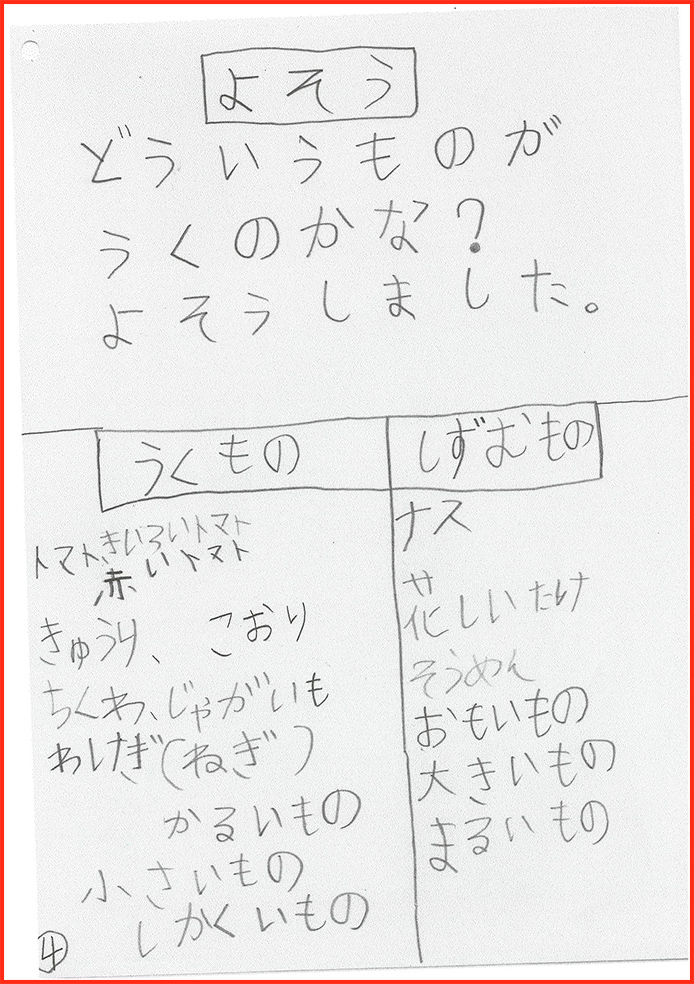 よそう
どういうものが
うくのかな?
よそうしました。
うくもの
トマト、きいろいトマト
赤いトマト
きゅうり、 こおり
ちくわ、じゃがいも
わけぎ(ねぎ)
かるいもの
小さいもの
しかくいもの
④
しずむもの
ナス
花しいたけ
そうめん
おもいもの
大きいもの
まるいもの